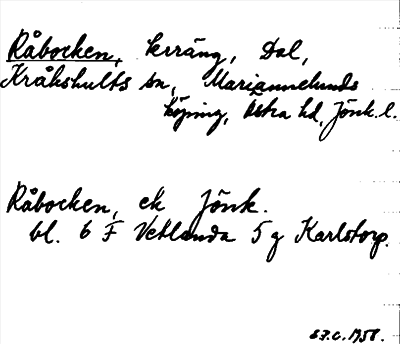 Råbocken, terräng, Dal,
Kråkshults sn, Mariannelunds
köping, Östra hd, Jönk. l.
Råbocken, ek Jönk.
bl. 6 F Vetlanda 5 g Karlstorp.
S.F.O. 1958.